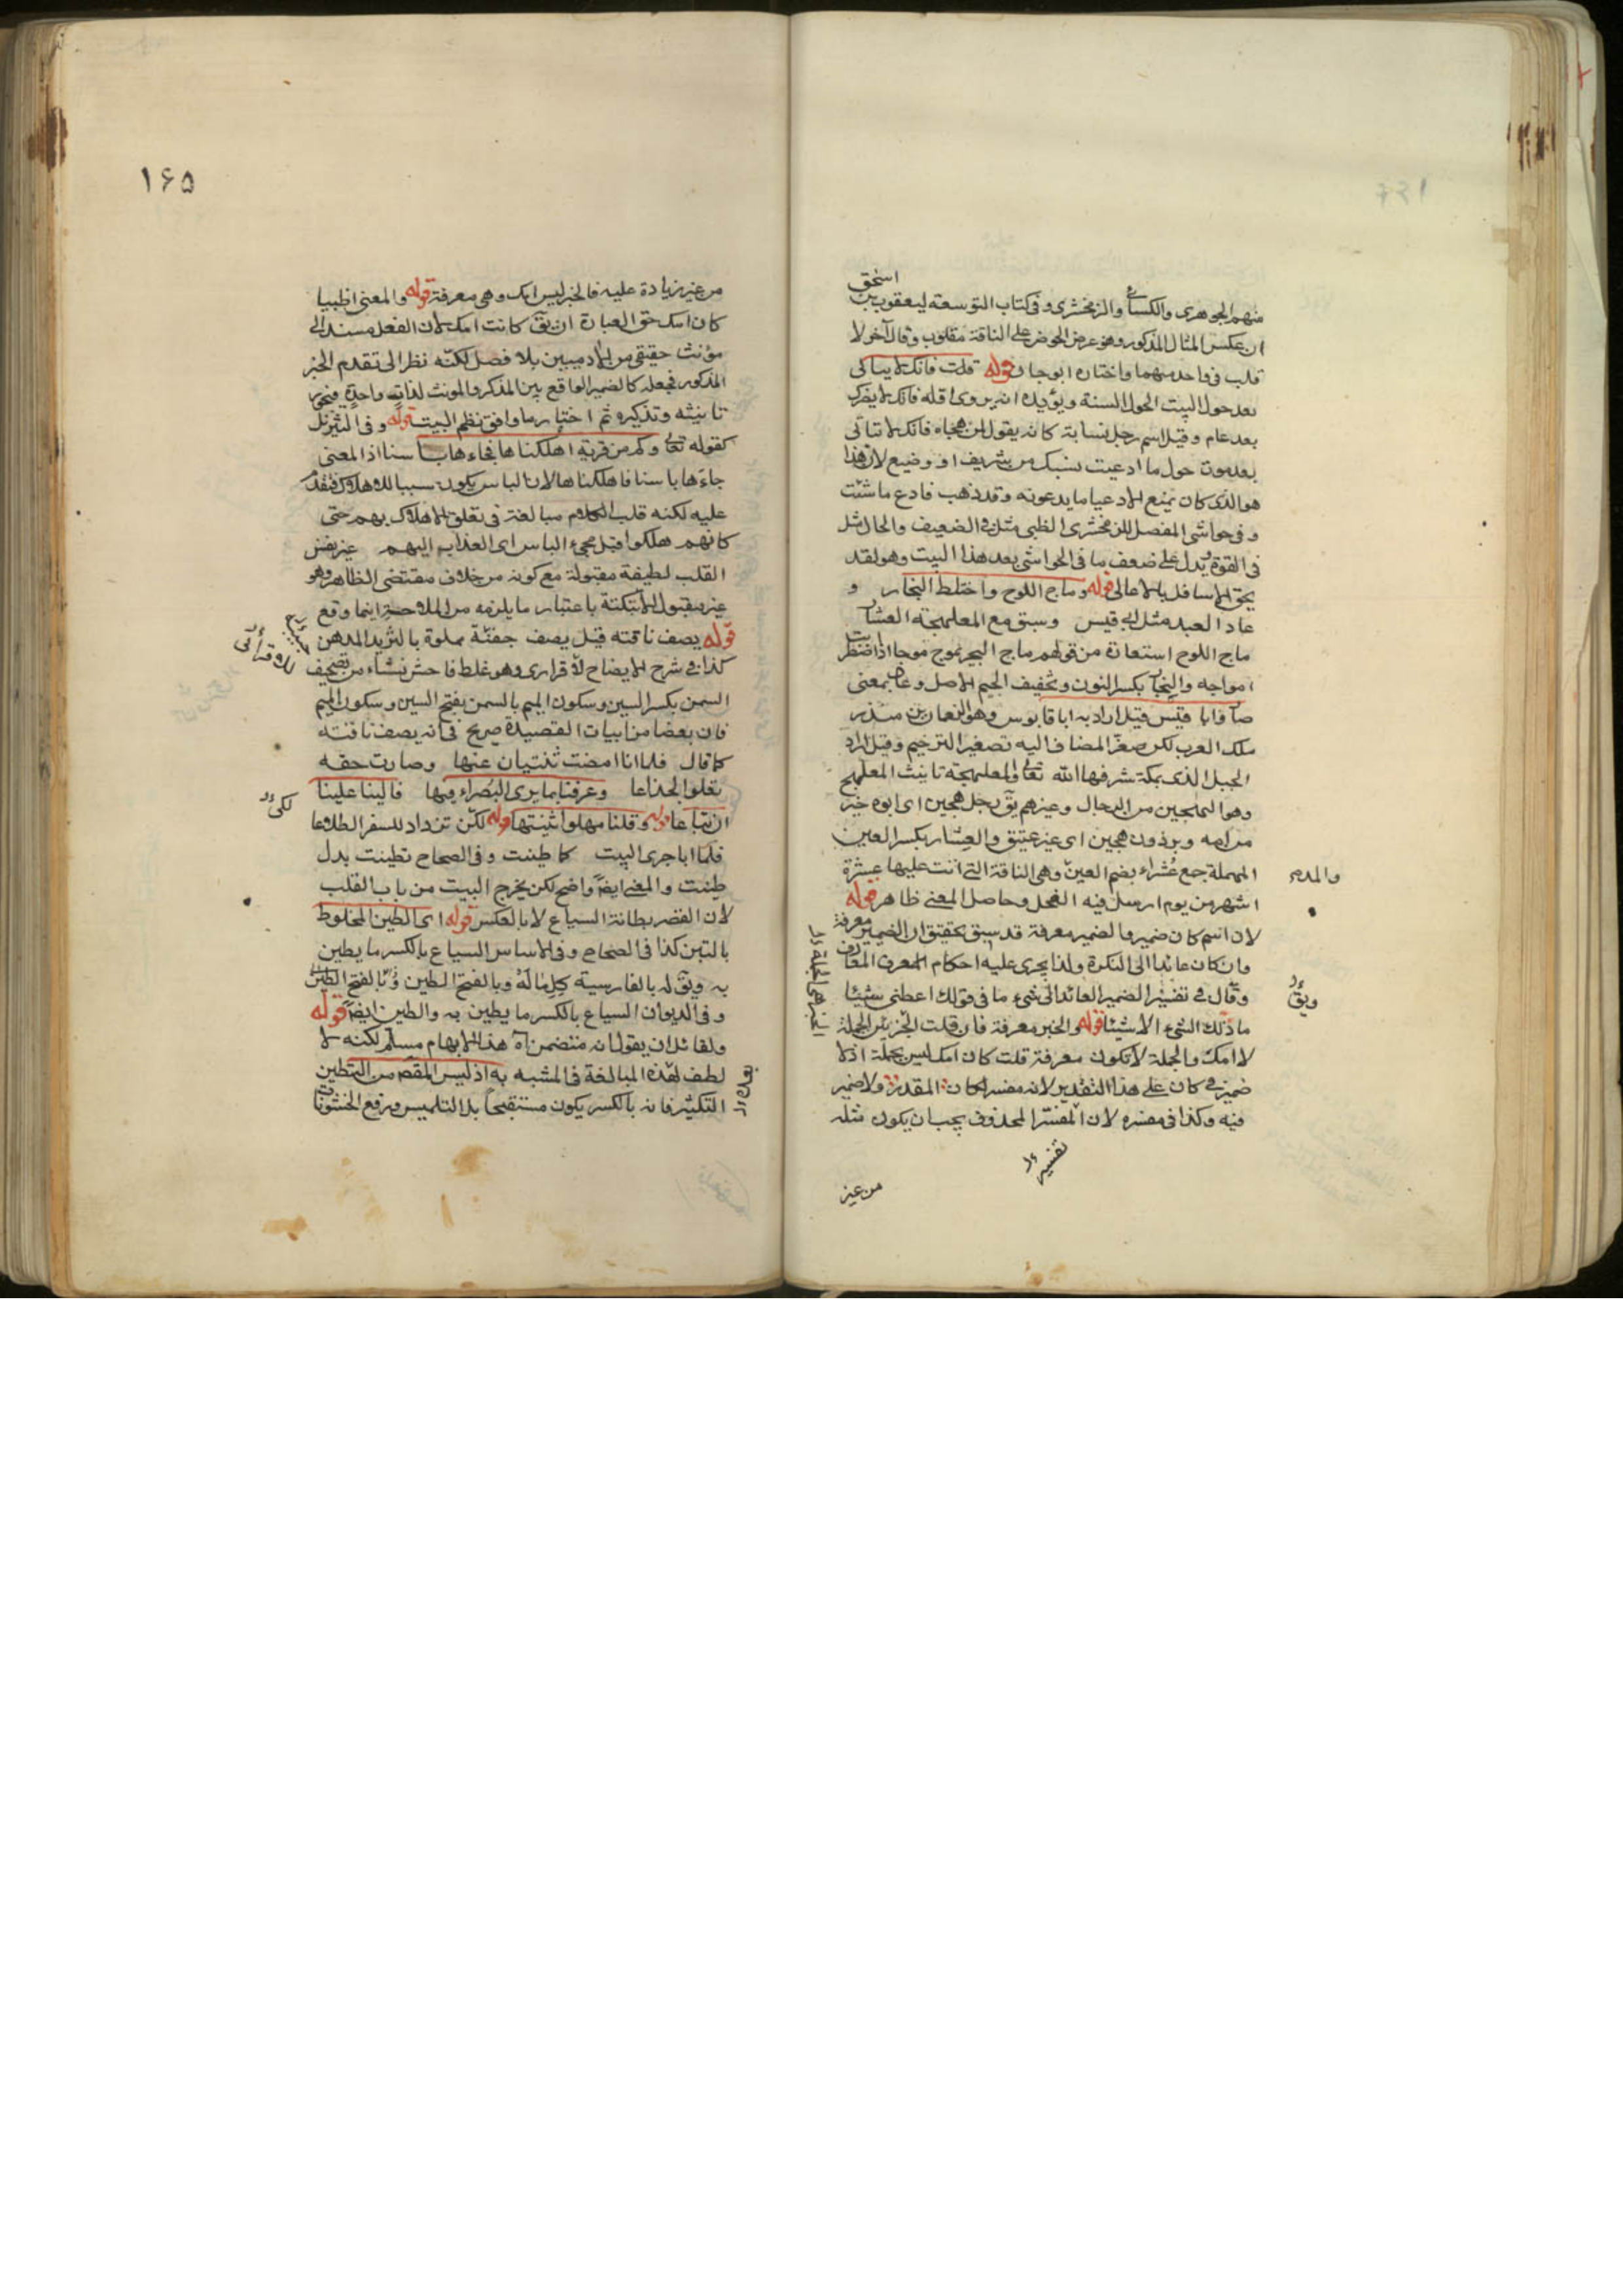 اسحق
منهم الجوهرى والكسائى والزمخشرى وفى كتاب التوسعة ليعقوب بن
ان عكس المثال المذكور وهو عرض الحوض على الناقة مقلوب وقال آخر لا
قلب فى واحد منهما واختاره ابو حيان قوله قلت فانك لا يبالى
بعد حول البيت الحول السنة ويؤيده انه يروى اقله فانك لا يضرك
بعد عام وقيل اسم رجل نسابة كانه يقول لمن هجاه فانك لا تبالى
بعد موت حول ما ادعيت نسبك من شريف او وضيع لان هذا
هو الذى كان يمنع الادعيا ما يدعونه وقد ذهب فادع ما شئت
وفى حواشى المفصل للزمخشرى الظبى مثل فى الضعيف والحمار مثل
فى القوة يدل على ضعف ما فى الحواشى بعد هذا البيت وهو لقد
يحق الاسافل بالاعالى قوله وماج اللوح واختلط النجار و
عاد العبد مثل ابى قيس وسيق مع المعلهجة العشار
ماج اللوح استعارة من قولهم ماج البحر تموج موجا اذا اضطربت
امواجه والنجار بكسر النون وتخفيف الجيم الاصل وعاد بمعنى
صار وابا قبيس قيل اراد به ابا قابوس وهو النعمان بن منذر
ملك العرب لكن صغر المضاف اليه تصغير الترخيم وقيل اراد
الجبل الذى بمكة شرفها الله تعالى والمعلهجة تانيث المعلهج
وهو الهجين من الرجال وغيرهم يق رجل هجين اى ابوه خير
من امه وبرذون هجين اى غير عتيق والعشار بكسر العين
المهملة جمع عُشَراء بضم العين وهى الناقة التى اتت عليها عشرة
اشهر من يوم ارسل فيه الفحل وحاصل المعنى ظاهر قوله
لان اسم كان ضمير والضمير معرفة قد سبق تحقيق ان الضمير معرفة
وان كان عائدا الى النكرة ولذا يجرى عليه احكام المعارف
وقال فى تفسير الضمير العائد الى شىء ما فى قولك اعطنى شيئا
ما ذلك الشىء الا شيئا قوله والخبر معرفة فان قلت الخبر الجملة
لا امك والجملة لا تكون معرفة قلت كان امك ليس بجملة اذ لا
ضمير فى كان على هذا التقدير لانه مفسر لكان المقدرة ولا ضمير
فيه وكذا فى مفسره لان المفسر المحذوف يجب ان يكون مثله
تفسيره
من غير
١٦٥
من غير زيادة عليه فالخبر ليس امك وهى معرفة قوله والمعنى اظبيا
كان امك حق العبارة ان يق كانت امك لان الفعل مسند الى
مؤنث حقيقى من الادميين بلا فصل لكنه نظر الى تقدم الخبر
المذكور فجعله كالضمير الواقع بين المذكر والمونث لذات واحدة فيجوز
تانيثه وتذكيره ثم اختار ما وافق نظم البيت قوله وفى التنزيل
كقوله تعالى وكم من قرية اهلكناها فجاءها باسنا اذ المعنى
جاءها باسنا فاهلكناها لان الباس يكون سببا للاهلاك فيقدم
عليه لكنه قلب الكلام مبالغة فى تعلق الاهلاك بهم حتى
كانهم هلكوا قبل مجىء الباس اى العذاب اليهم غير نفس
القلب لطيفة مقبولة مع كونه من خلاف مقتضى الظاهر وهو
غير مقبول الا بنكتة باعتبار ما يلزمه من الملاحة اينما وقع
قوله يصف ناقته قيل يصف جفنة مملوة بالثريد المدهن
كذا فى شرح الايضاح للاقرارى وهو غلط فاحش نشاء من تصحيف
السمن بكسر السين وسكون الميم بالسمن بفتح السين وسكون الميم
فان بعضا من ابيات القصيدة صريح فى انه يصف ناقته
كما قال فلما انا امضت ثنتيان عنها وصارت حقه
تعلو الجذاعا وعرفنا بما يرى البُصراء فيها فالينا علينا
ان تباعا قوله وقلنا مهلوا ثنيتها قوله لكن تزداد للسفر اطلاعا
فلما ابا جرى البيت كما طينت وفى الصحاح تطينت بدل
طينت والمعنى ايضا واضح لكن يخرج البيت من باب القلب
لان القصر بطانة السياع لا بالعكس قوله اى الطين المخلوط
بالتبن كذا فى الصحاح وفى الاساس السياع بالكسر ما يطين
به ويق له بالفارسية كِلِ مَالَهْ وبالفتح الطين وق بالفتح الطين
وفى الديوان السياع بالكسر ما يطين به والطين ايضا قوله
ولقائل ان يقول انه متضمن آه هذا الابهام مسلم لكنه لا
لطف لهذه المبالغة فى المشبه به اذ ليس المقص من التطين
التكثير فانه بالكسر يكون مستقبحا بل التلميس ورفع الخشونات